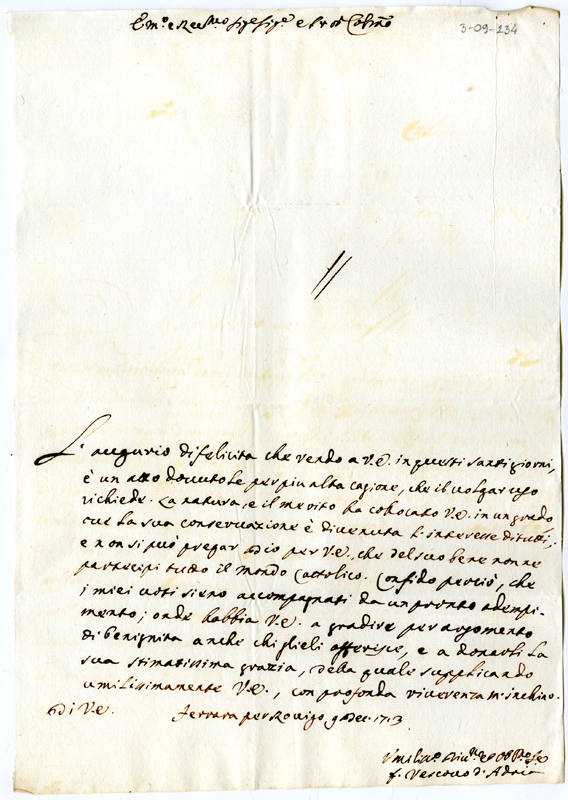 Em.º e Reu.mo Sig.re Sig.re e Pr̄on Colmō
3-09-134
L'augurio di felicita che rendo a V.E. in questi santi giorni,
è un atto dovutole per piu alta cagione, che il volgar uso
richiede. La natura, e il merito ha collocato V.E. in un grado
che la sua conservazione è divenuta l'interesse di tutti,
e non si può pregar Dio per V.E., che del suo bene non ne
partecipi tutto il mondo Cattolico. Confido perciò, che
i miei voti sieno accompagnati da un pronto adempi-
mento; onde habbia V.E. a gradire per argomento
di benignita anche chi glieli offerisce, e a donarli la
sua stimatissima grazia, della quale supplicando
umilissimamente V.E., con profonda riverenza m'inchino.
Di V.E. Ferrara per Rovigo 9 Dec. 1713
Vmiliss.º
f. Vescovo d'Adria